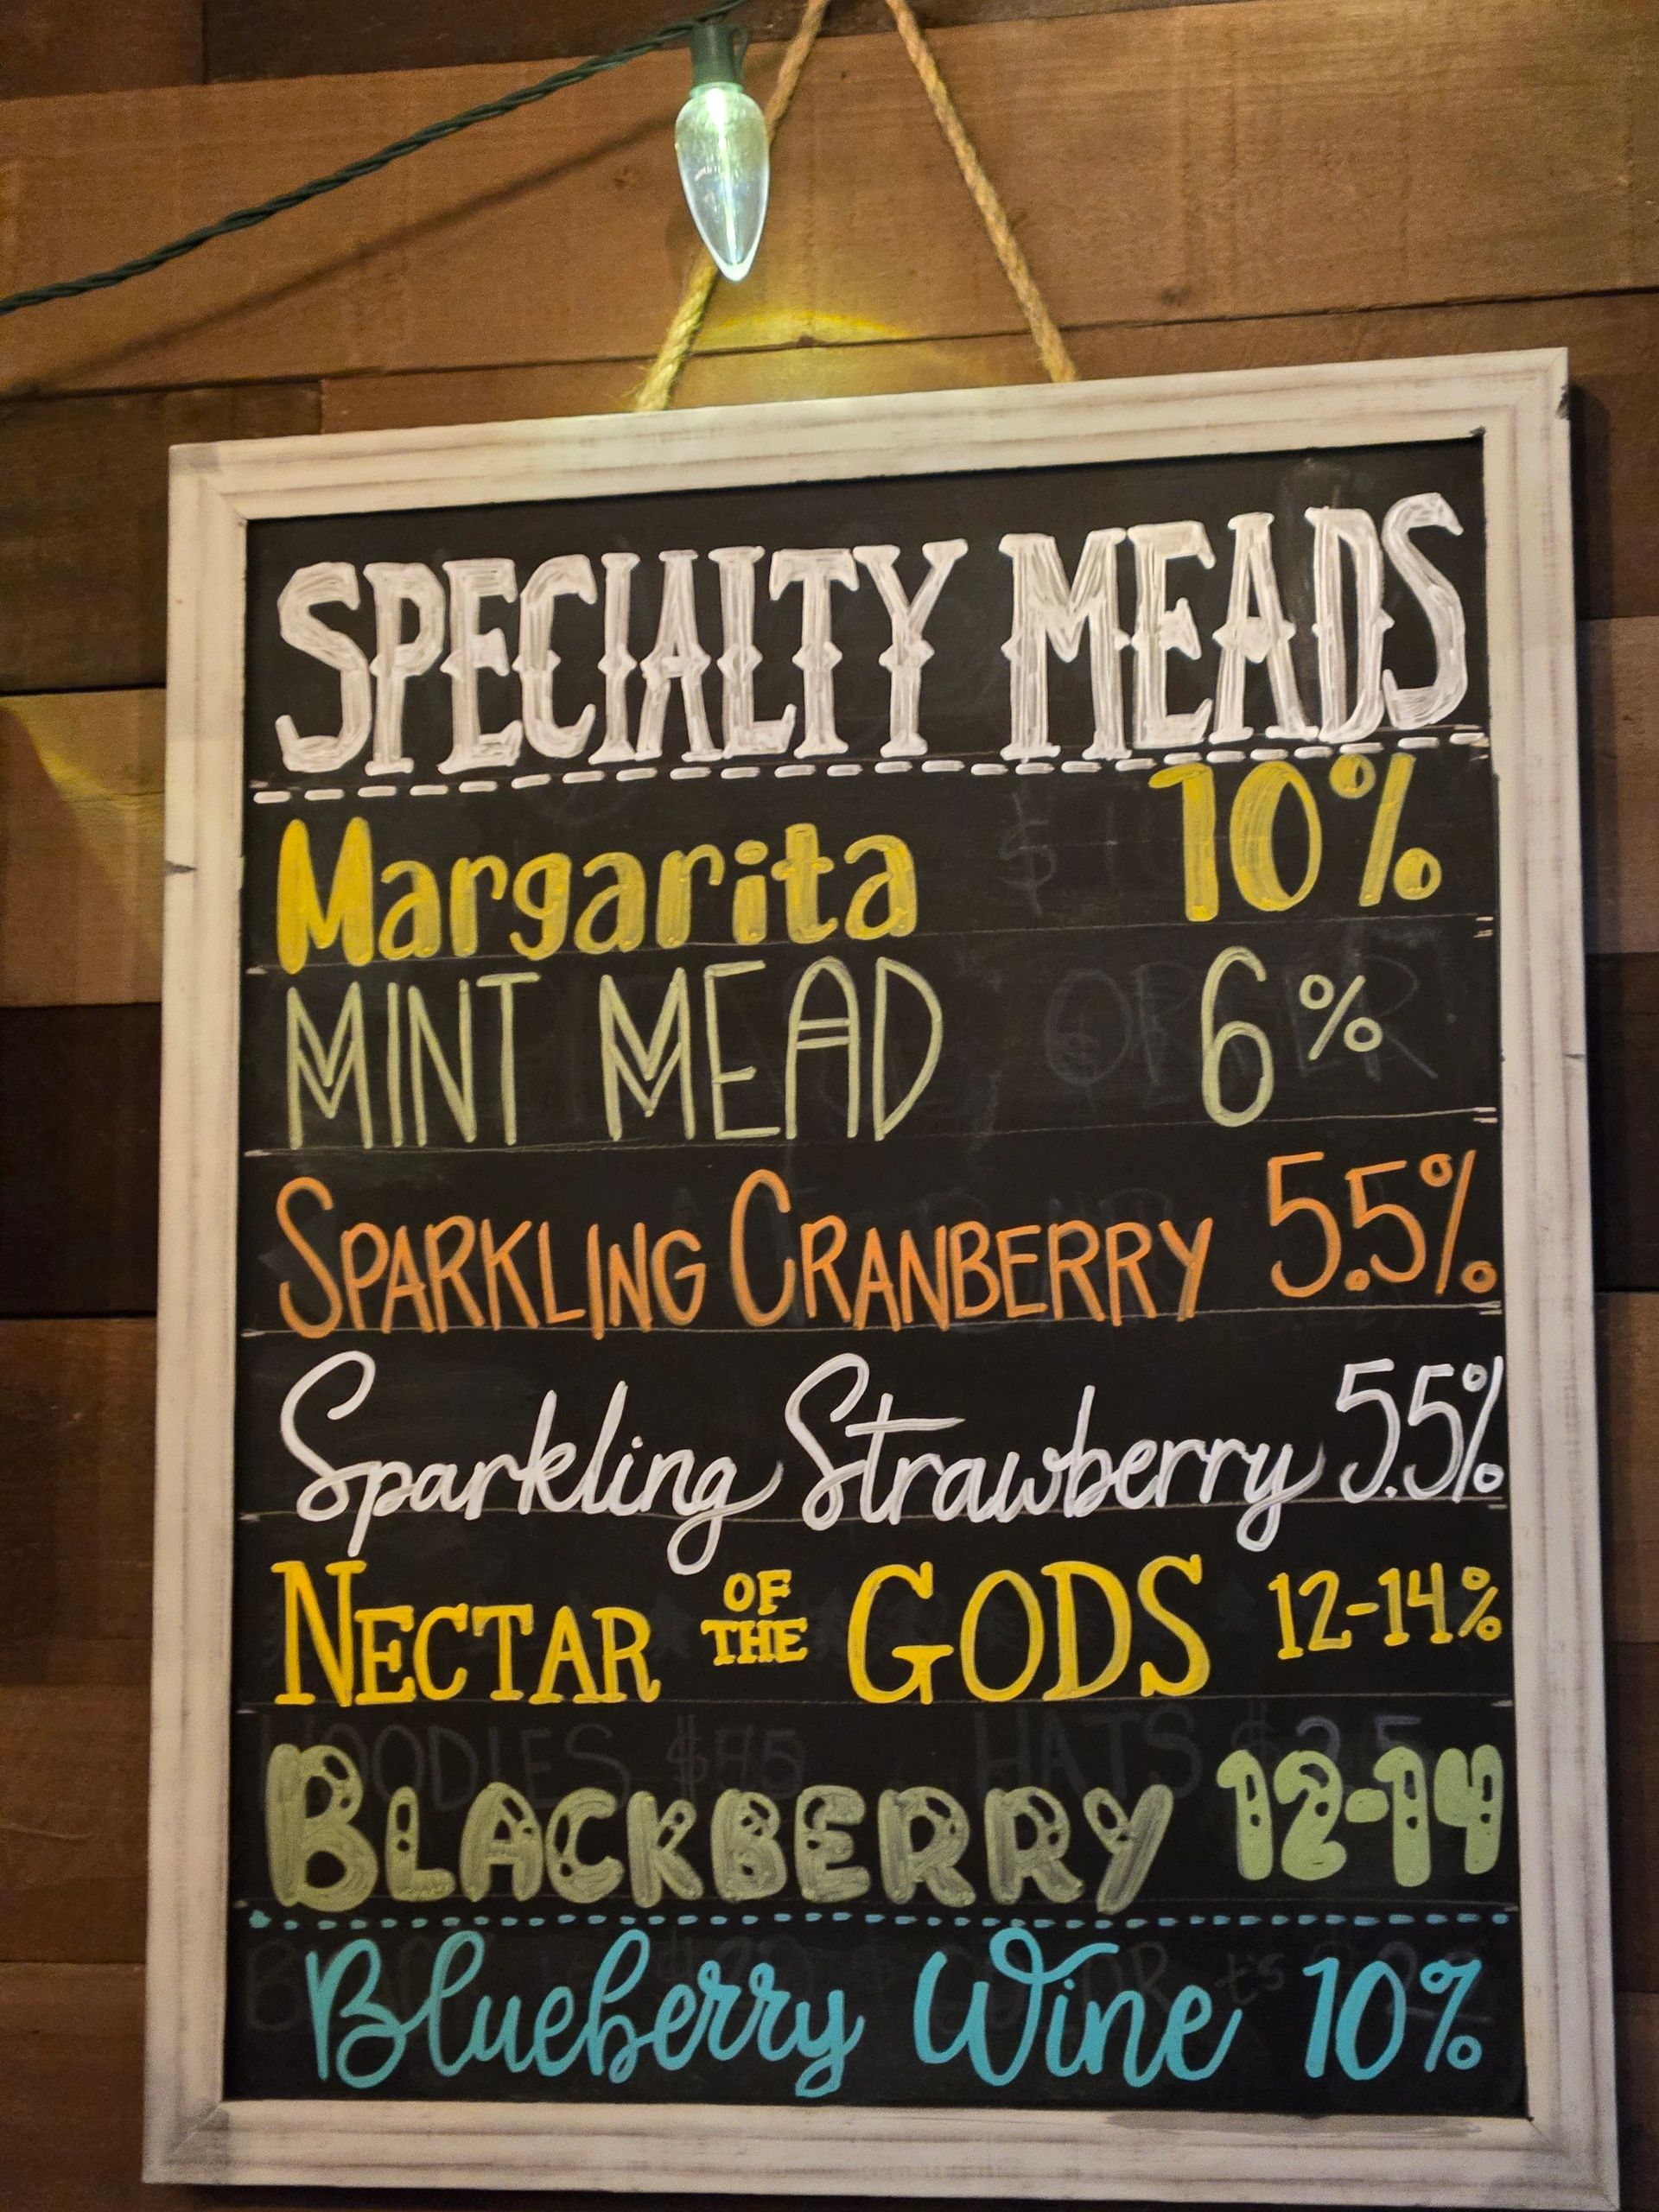 SPECIALTY MEADS
Margarita 10%
MINT MEAD 6%
SPARKLING CRANBERRY 5.5%
Sparkling Strawberry 5.5%
NECTAR OF THE GODS 12-14%
BLACKBERRY 12-14
Blueberry Wine 10%